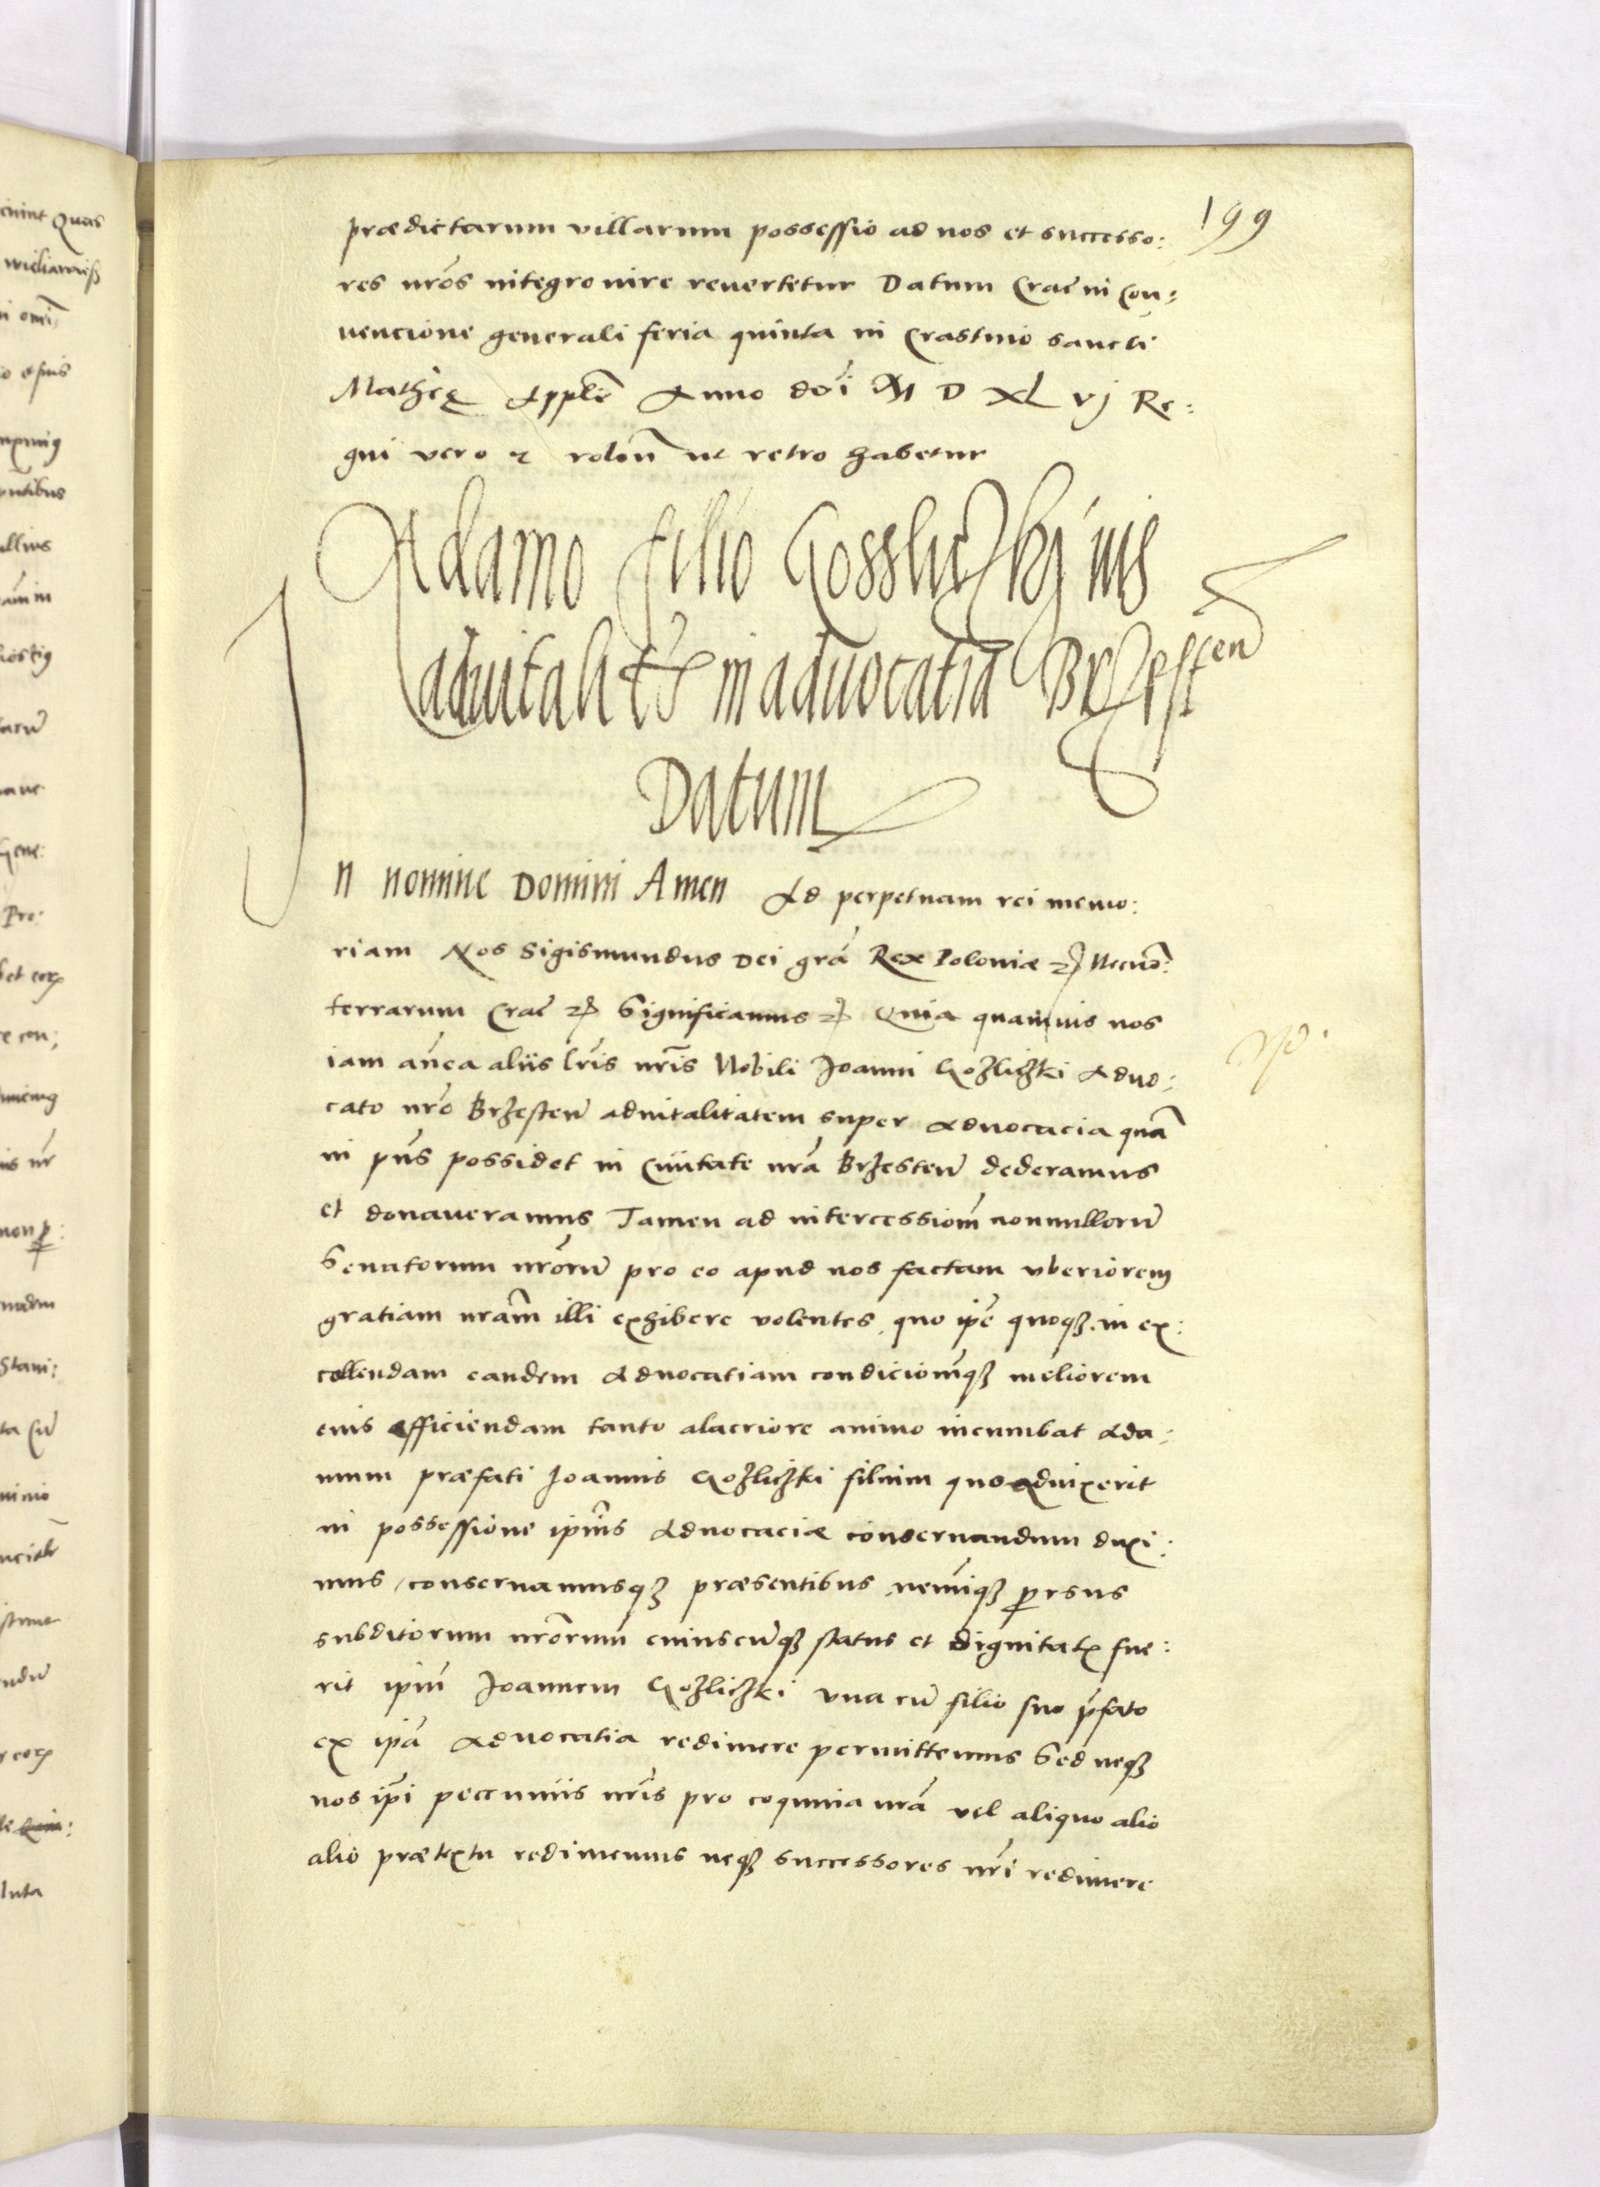 199
prædictarum villarum possessio ad nos et successo:
res nr̃os integro iure revertetur Datum Crac̃ in Con:
uencione generali feria quinta in Crastino sancti
Matheę Appl̃i Anno dõi M D XL vj Re:
gni vero ut retro habetur
Adamo filio Gosslicȝkj ius
aduitalit̃s in aduocatia Brȝesten
Datum
In nomine Domini Amen Ad perpetuam rei memo:
riam Nos Sigismundus Dei grã Rex Poloniæ ꝛc̃ Necnõ:
terrarum Crac̃ ꝛc̃ Significamus ꝛc̃ Quia quamuis nos
iam añea aliis lr̃is nr̃is Nobili Joanni Goȝlicȝki Aduo:
cato nr̃o Brȝesten̄ aduitalitatem super Aduocacia quã
in pñs possidet in Ciuitate nr̃a Brȝesten̄ dederamus
et donaueramus Tamen ad intercessiom̃ nonnullorū
Senatorum nr̃orū pro eo apud nos factam vberiorem
gratiam nr̃am illi exhibere volentes quo ip̃e quoqȝ in ex:
collendam eandem Aduocatiam condiciom̃qȝ meliorem
eius efficiendam tanto alacriore animo incumbat Ada:
mum præfati Joannis Goȝlicȝki filium quoad uixerit
in possessione ip̃ius Aduocaciæ conseruandum duxi:
mus conseruamusqȝ præsentibus nem̃iqȝ ꝓrsus
subditorum nr̃orum cuiuscūqȝ status et dignitatꝭ fue:
rit ip̃m Joannem Goȝlicȝki vna cū filio suo p̃fato
ex ip̃a Aduocatia redimere permittemus Sed neqȝ
nos ip̃i peccuniis nr̃is pro coquina nr̃a vel aliquo alio
alio prætextu redimemus neqȝ successores nr̃i redimere